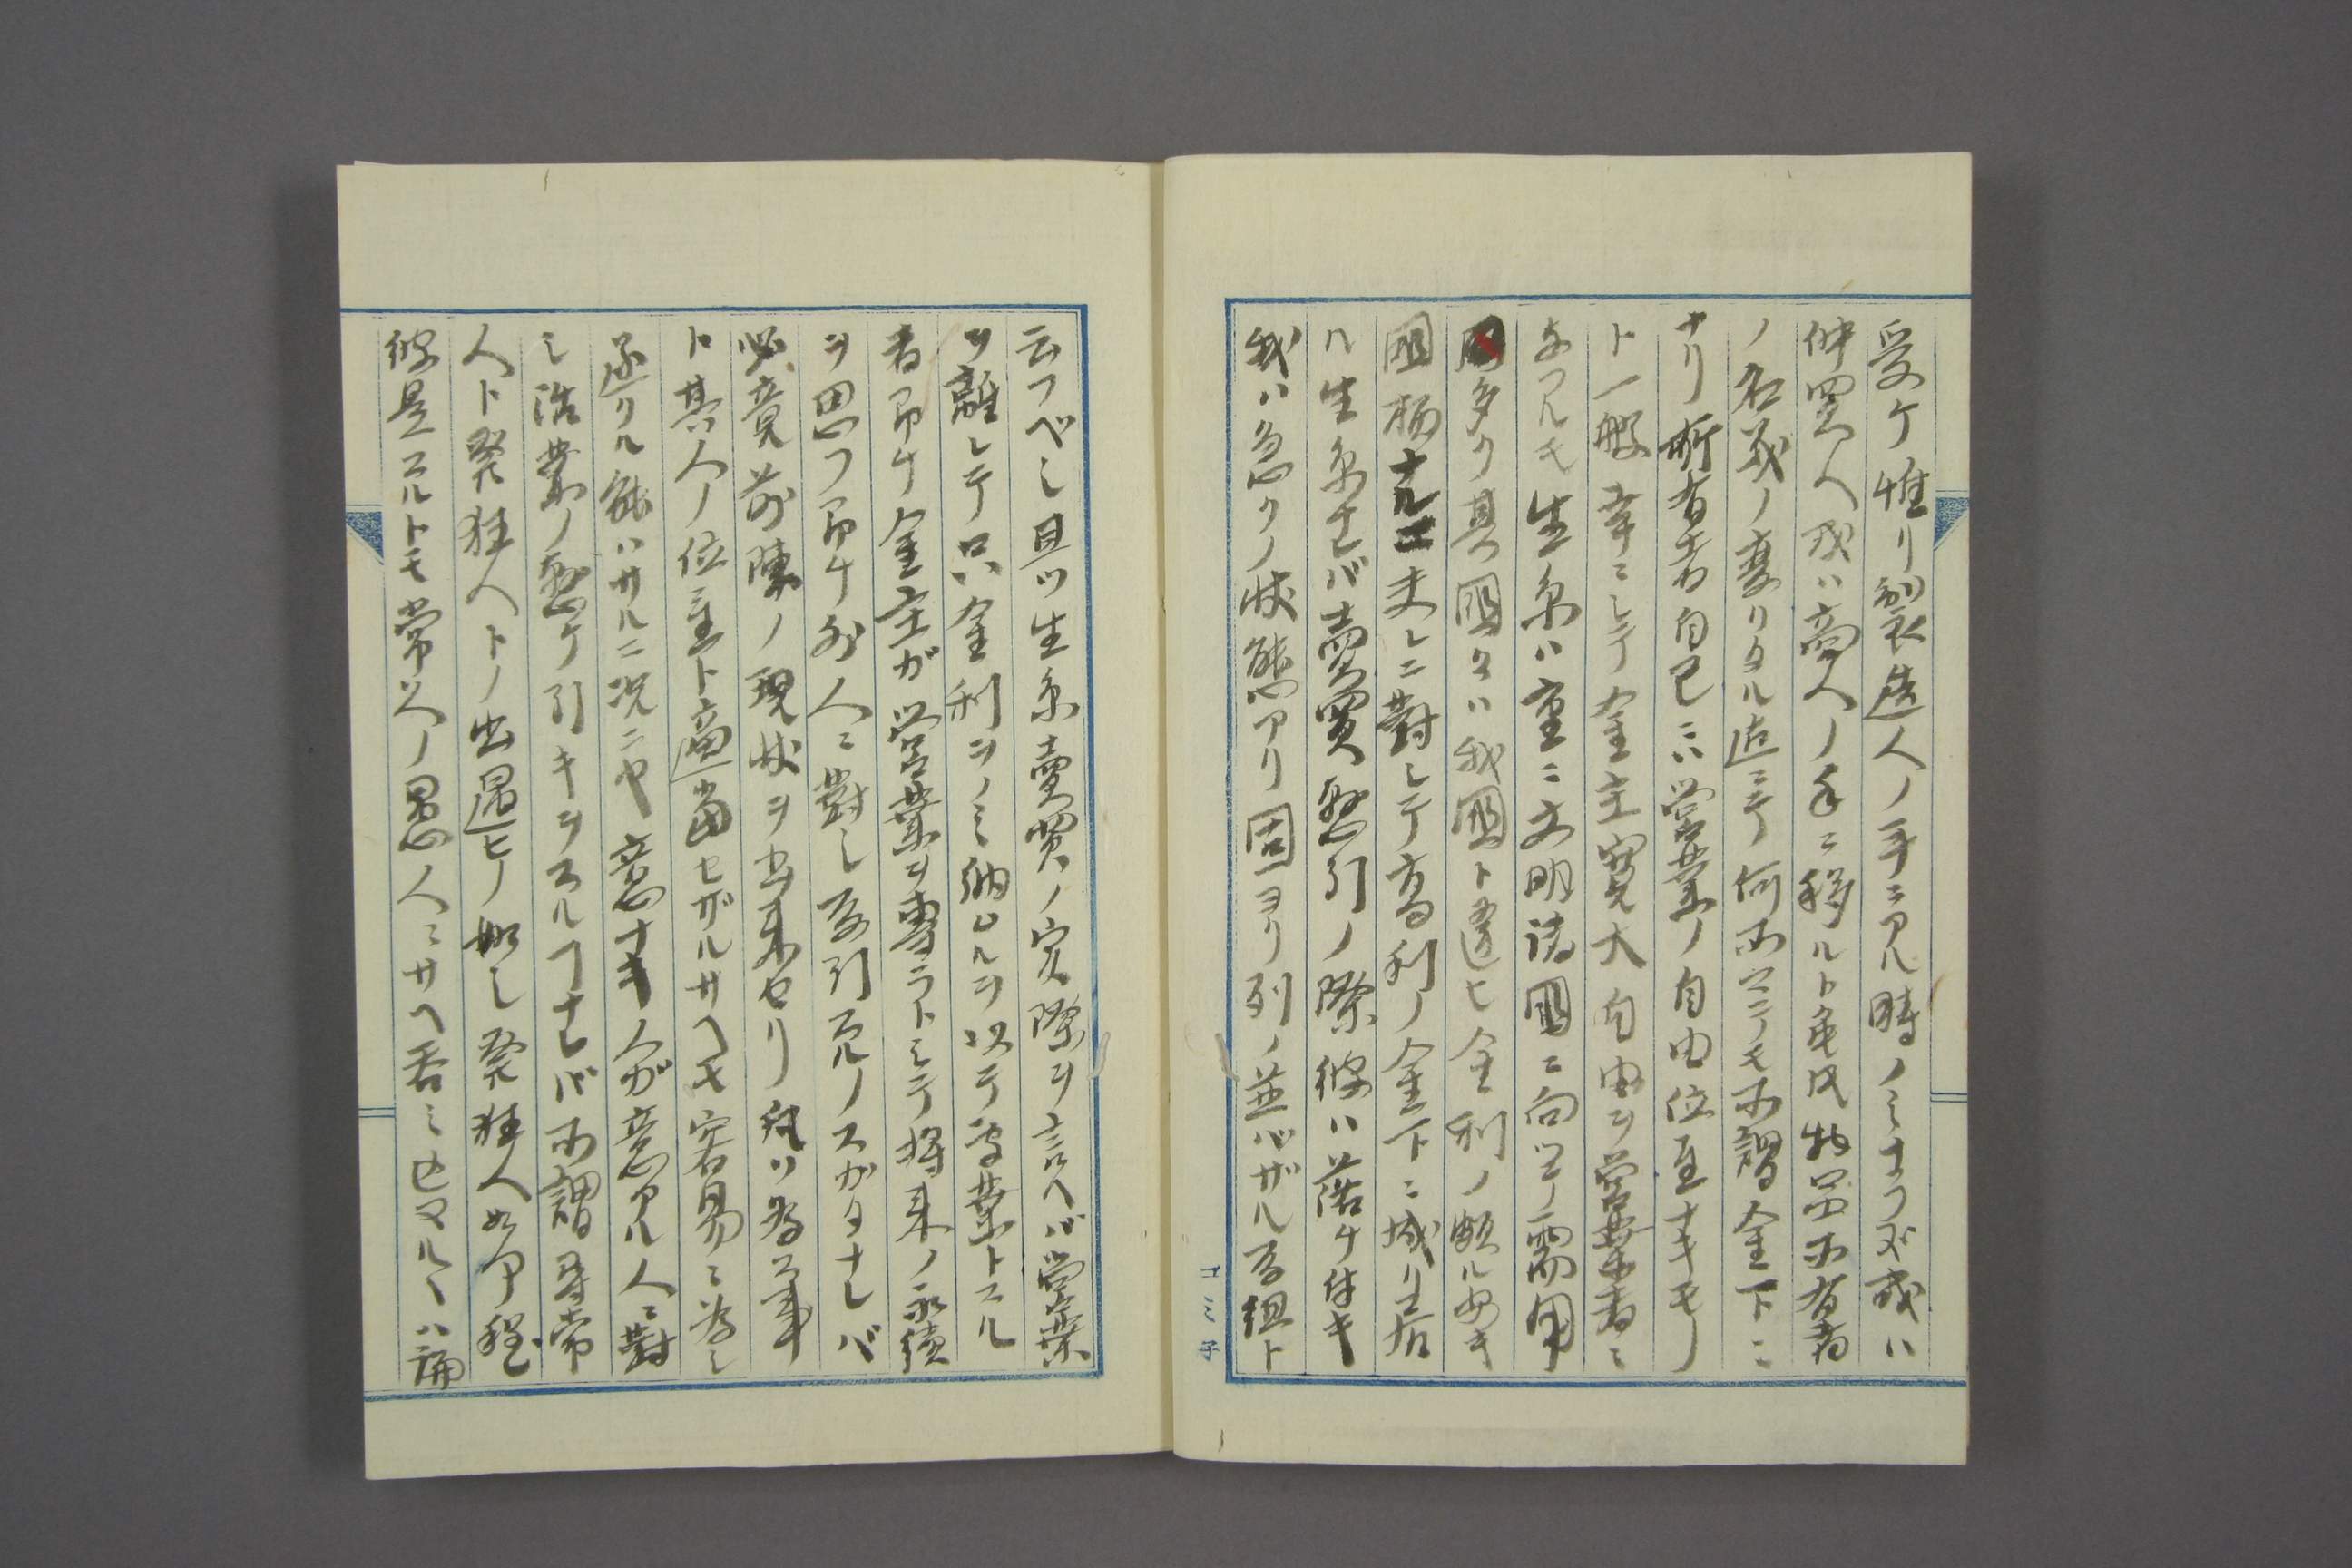 受ケ惟リ製造人ノ手ニアル時ノミナラズ或ハ
仲買人或ハ商人ノ手ニ移ルト毎氏物品所有者
ノ名義ノ変リタル迄ニテ何所マテモ所謂金下ニ
ナリ所有者自己ニハ営業ノ自由位置ナキモノ
ト一般幸ニシテ金主寛大自由ヲ営業者ニ
与フルモ生糸ハ重ニ文明諸国ニ向ツテ需用
多ク其国々ハ我国ト違ヒ金利ノ頗ル安キ
国柄ナルニ夫レニ對シテ高利ノ金下ニ成リ居
ル生糸ナレバ賣買懸引ノ際彼ハ落ケ付キ
我ハ急クノ状態アリ固ヨリ列ノ並バザル取組ト
云フベシ且ツ生糸賣買ノ実際ヲ言ヘバ営業
ヲ離レテ只金利ヲノミ納ムルヲ以テ専業トスル
者即チ金主ガ営業ヲ専ラトシテ将来ノ永続
ヲ思フ即チ外人ニ對シ取引スルノスガタナレバ
必竟前陳ノ現状ヲ出来セリ假リ為ス事
ト其人ノ位置ト適當セザルサヘモ容易ニ為シ
遂クル能ハサルニ况ニヤ意ナキ人ガ意アル人ニ對
シ活業ノ懸ケ引キヲスルヿナレバ所謂尋常
人ト発狂人トノ出遇ヒノ如シ発狂人如何程
彼是スルトモ常人ノ愚人ニサヘ呑ミ込マルヽハ論
コミ子